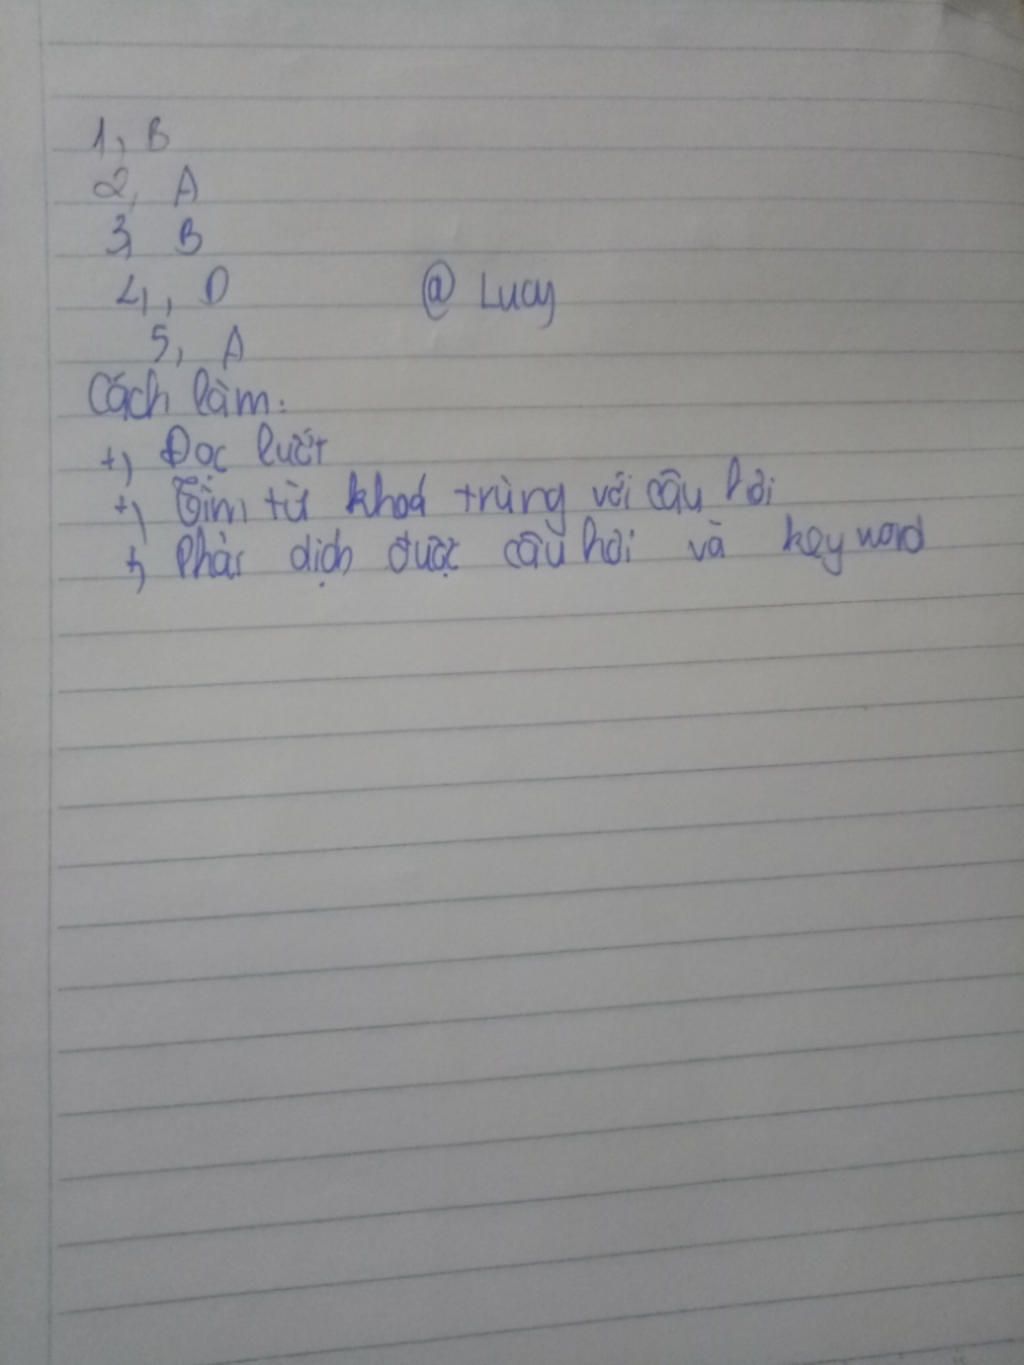 1, B
2, A
3, B
4, D @ Lucy
5, A
Cách làm:
+) Đọc lướt
+) Tìm từ khoá trùng với câu hỏi
+) Phải dịch được câu hỏi và keyword